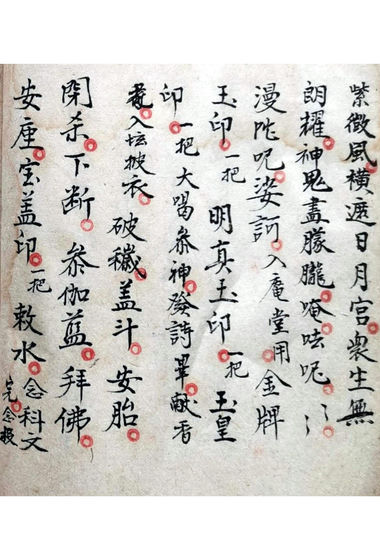 紫微風橫遮日月宮衆生無
朗耀神鬼盡朦朧唵呿呢⺀
漫陀呢娑訶入庵堂用金牌
玉印一把明真玉印一把玉皇
印一把大喝叅神發詩畢献香
入坛披衣破穢盖斗安胎
閉杀下断叅伽藍拜佛
安座宝盖印一把敕水念科文
完念